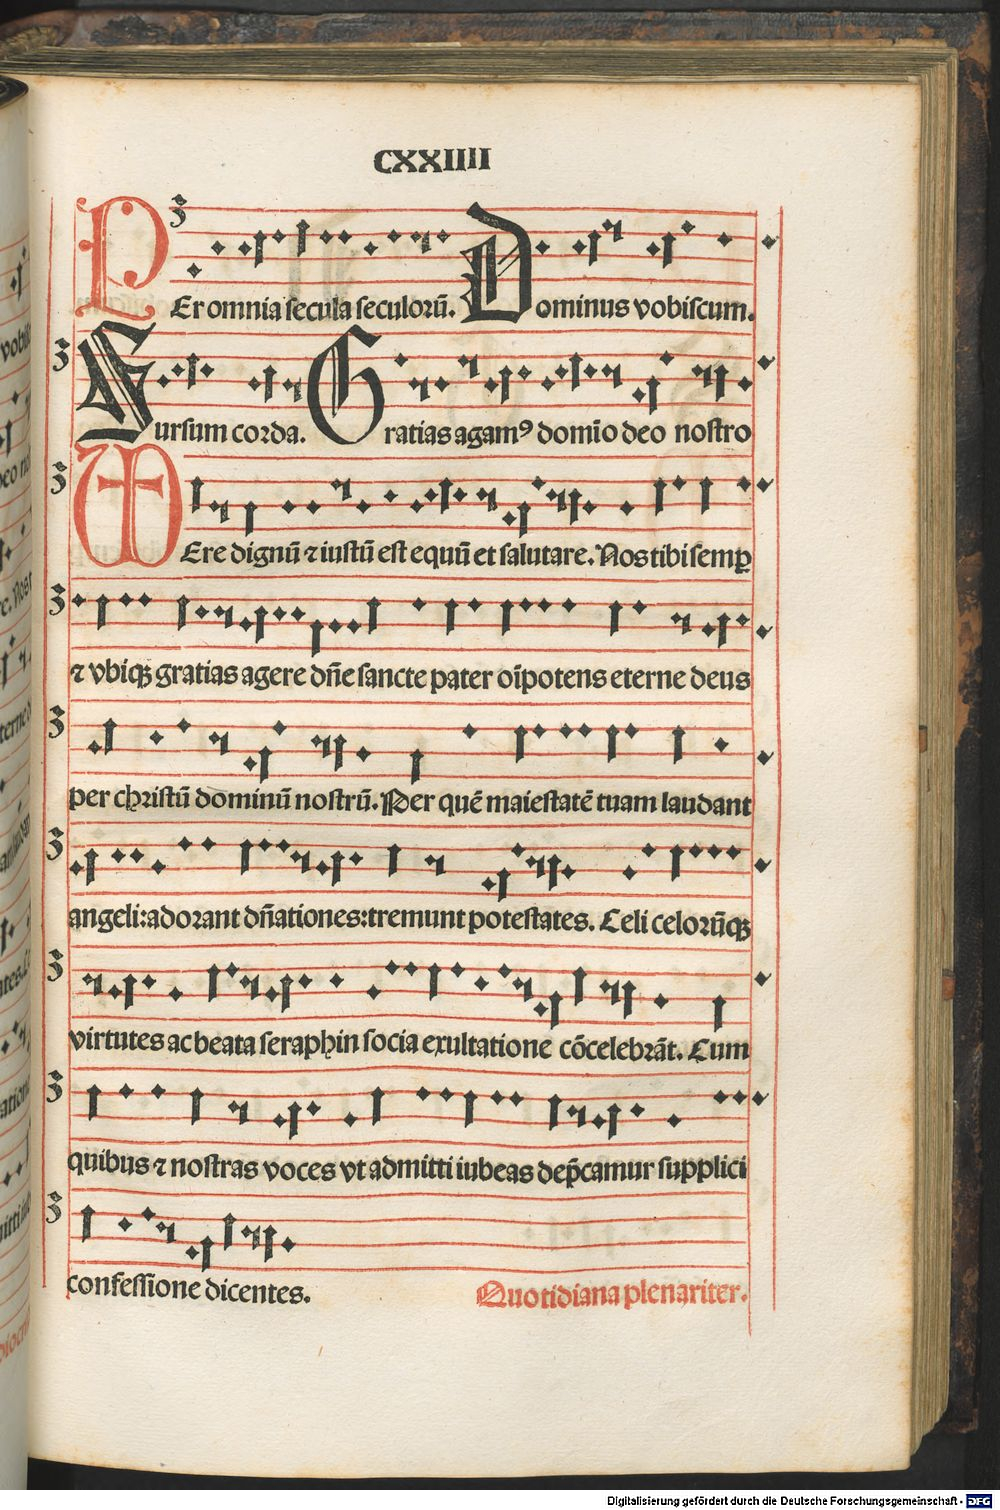 CXXIIII
PEr omnia secula seculorū. Dominus vobiscum.
Sursum corda. Gratias agamꝰ domīo deo nostro
VEre dignū ⁊ iustū est equū et salutare. Nos tibi semꝑ
⁊ vbiqꝫ gratias agere dn̄e sancte pater oīpotens eterne deus
per christū dominū nostrū. Per quē maiestatē tuam laudant
angeli: adorant dn̄ationes: tremunt potestates. Celi celorūqꝫ
virtutes ac beata seraphin socia exultatione cōcelebrāt. Cum
quibus ⁊ nostras voces vt admitti iubeas dep̄camur supplici
confessione dicentes. Quotidiana plenariter.
Digitalisierung gefördert durch die Deutsche Forschungsgemeinschaft - DFG